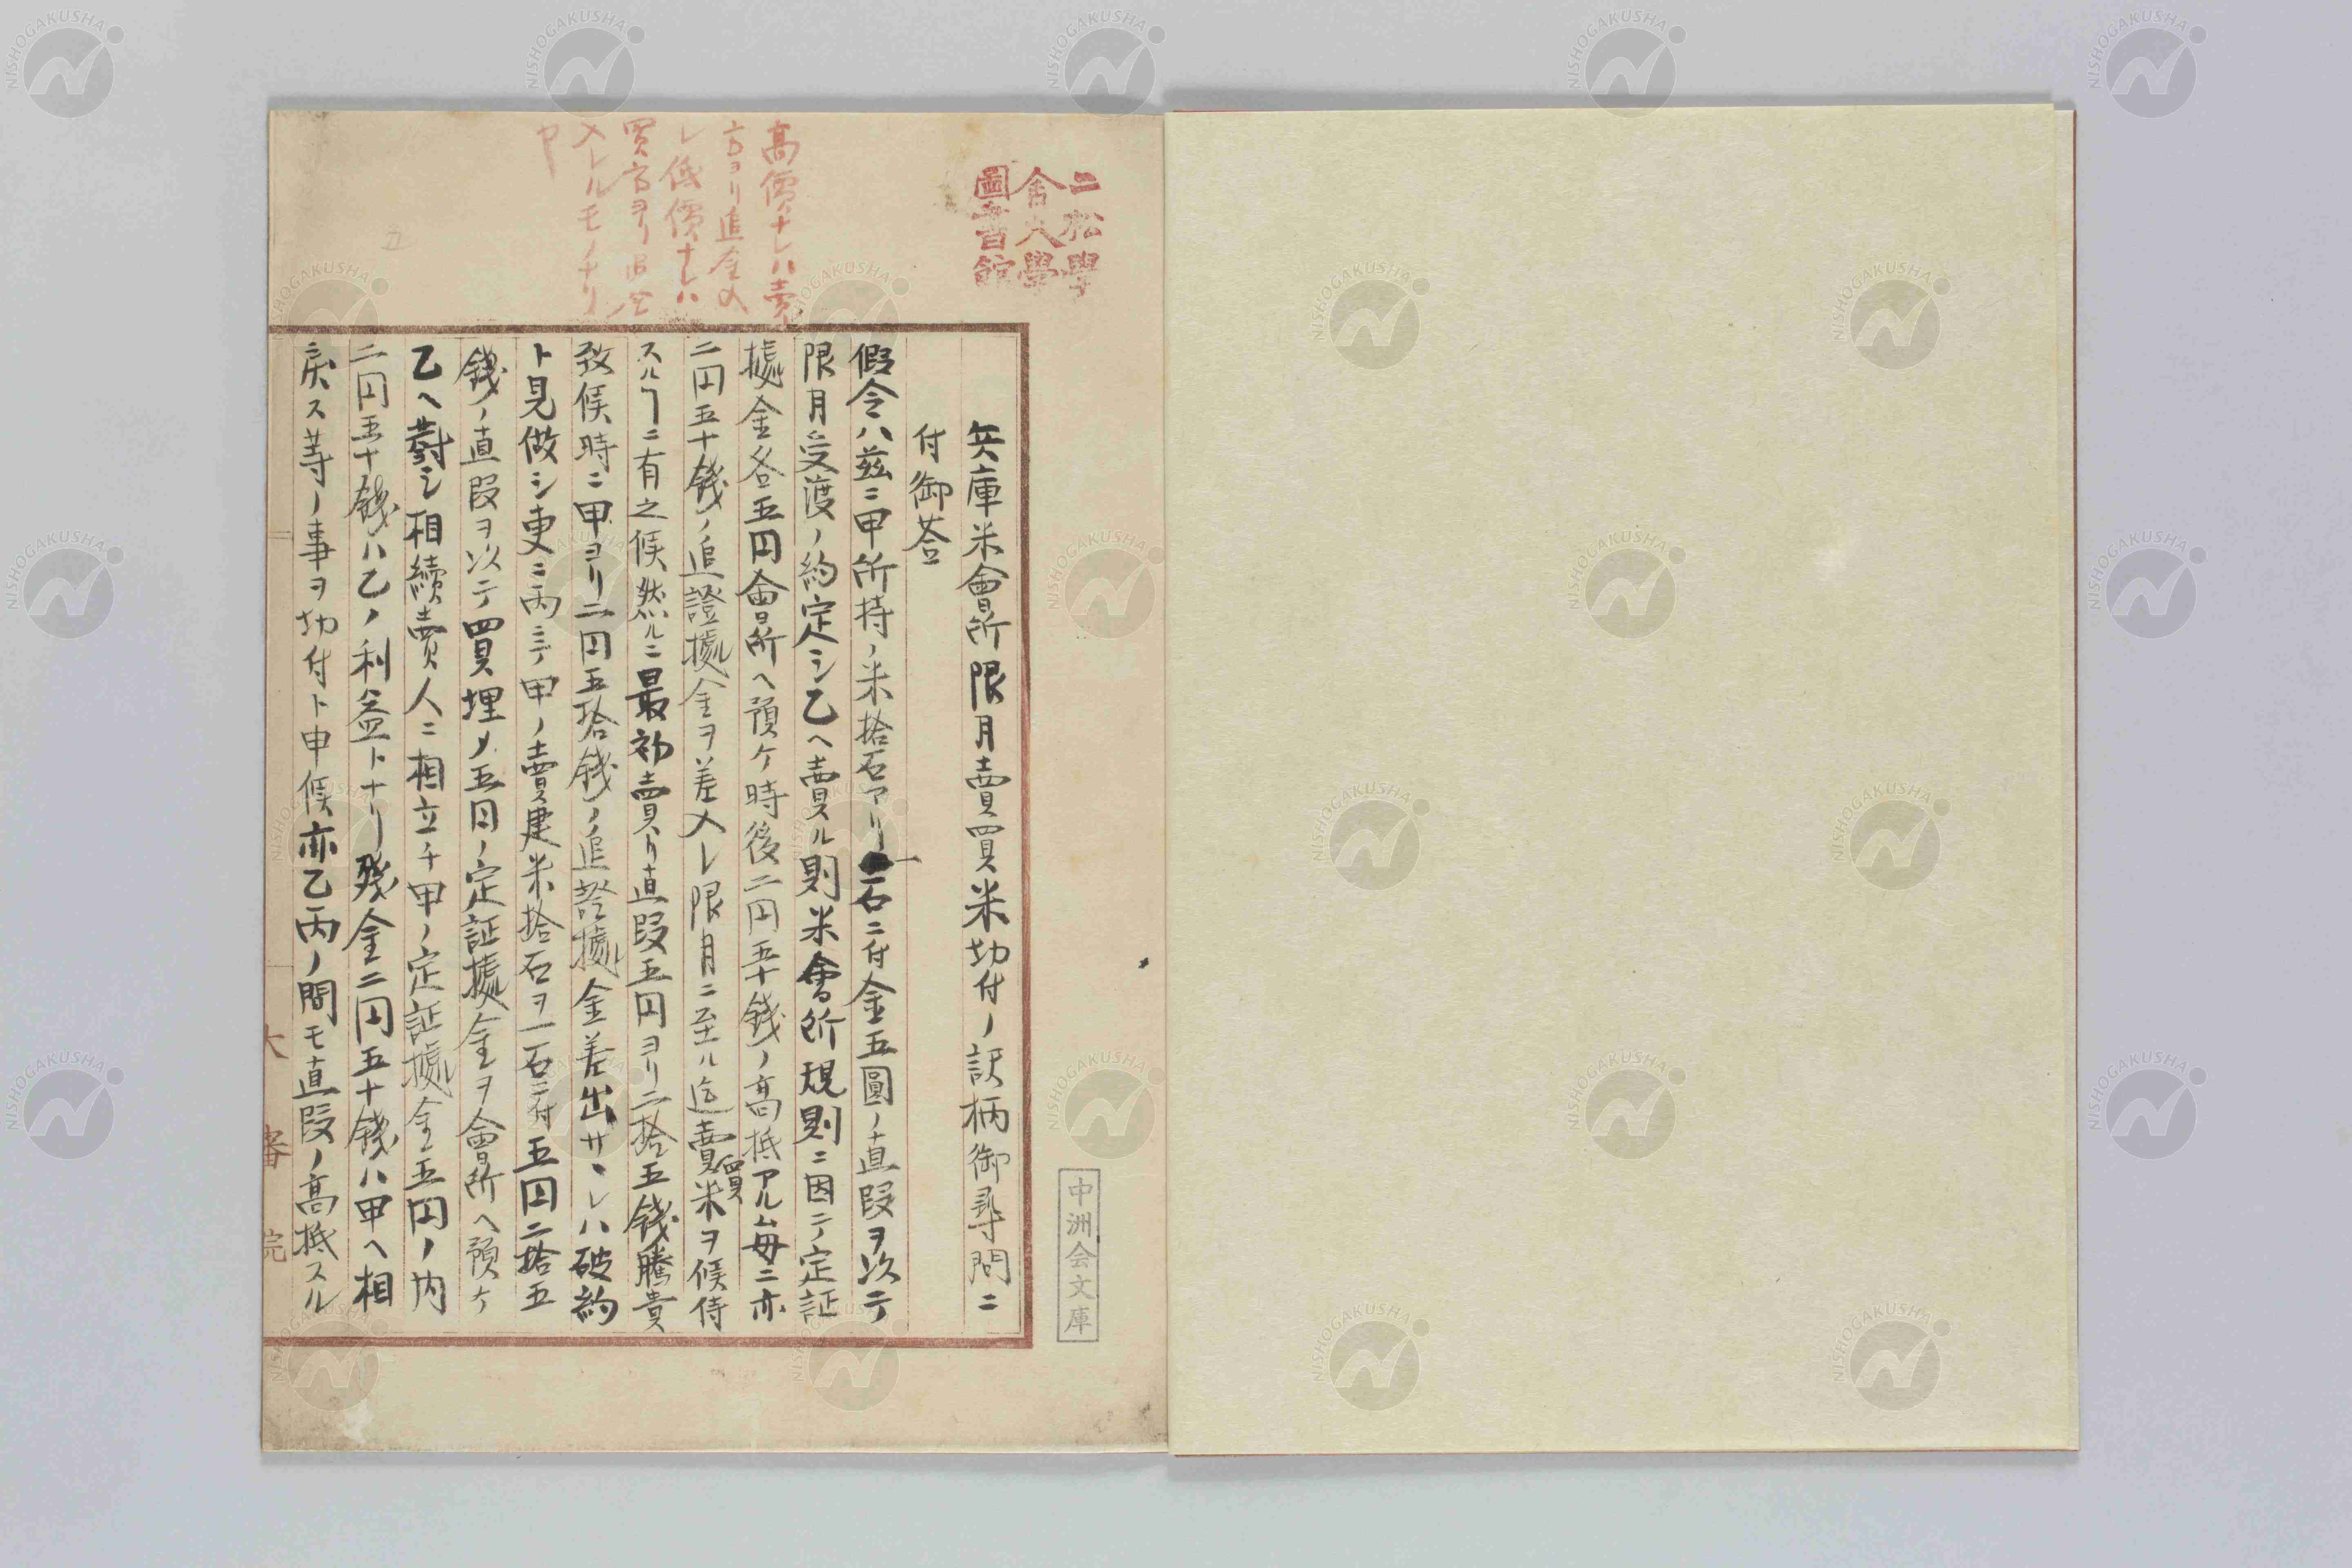 兵庫米會所限月賣買米切付ノ訳柄御尋問ニ
付御荅
假令ハ茲ニ甲所持ノ米拾石アリ一石ニ付金五圓ノ直段ヲ以テ
限月受渡ノ約定シ乙ヘ賣ル則米會所規則ニ因テ定証
據金各五円會所ヘ預ケ時後二円五十錢ノ高抵アルム毎ニ亦
二円五十錢ノ追證據金ヲ差入レ限月ニ至ル迄賣買米ヲ候侍
スルヿニ有之候然ルニ最初賣リ直段五円ヨリ二拾五錢騰貴
致候時ニ甲ヨリ二円五拾錢ノ追證據金差出サヽレハ破約
ト見做シ更ニ丙ニテ甲ノ賣建米拾石ヲ一石ニ付五円二拾五
錢ノ直段ヲ以テ買埋メ五円ノ定証據金ヲ會所ヘ預ケ
乙ヘ對シ相續賣人ニ相立チ甲ノ定証據金五円ノ内
二円五十錢ハ乙ノ利益トナリ殘金二円五十錢ハ甲ヘ相
戻ス䓁ノ事ヲ切付ト申候亦乙丙ノ間モ直段ノ高抵スル
高價ナレハ賣
方ヨリ追金入
レ低價ナレハ
買方ヨリ追金
入レルモノナリ
ヤ
二松學
舎大學
圖書館
中洲会文庫
大審院
NISHOGAKUSHA